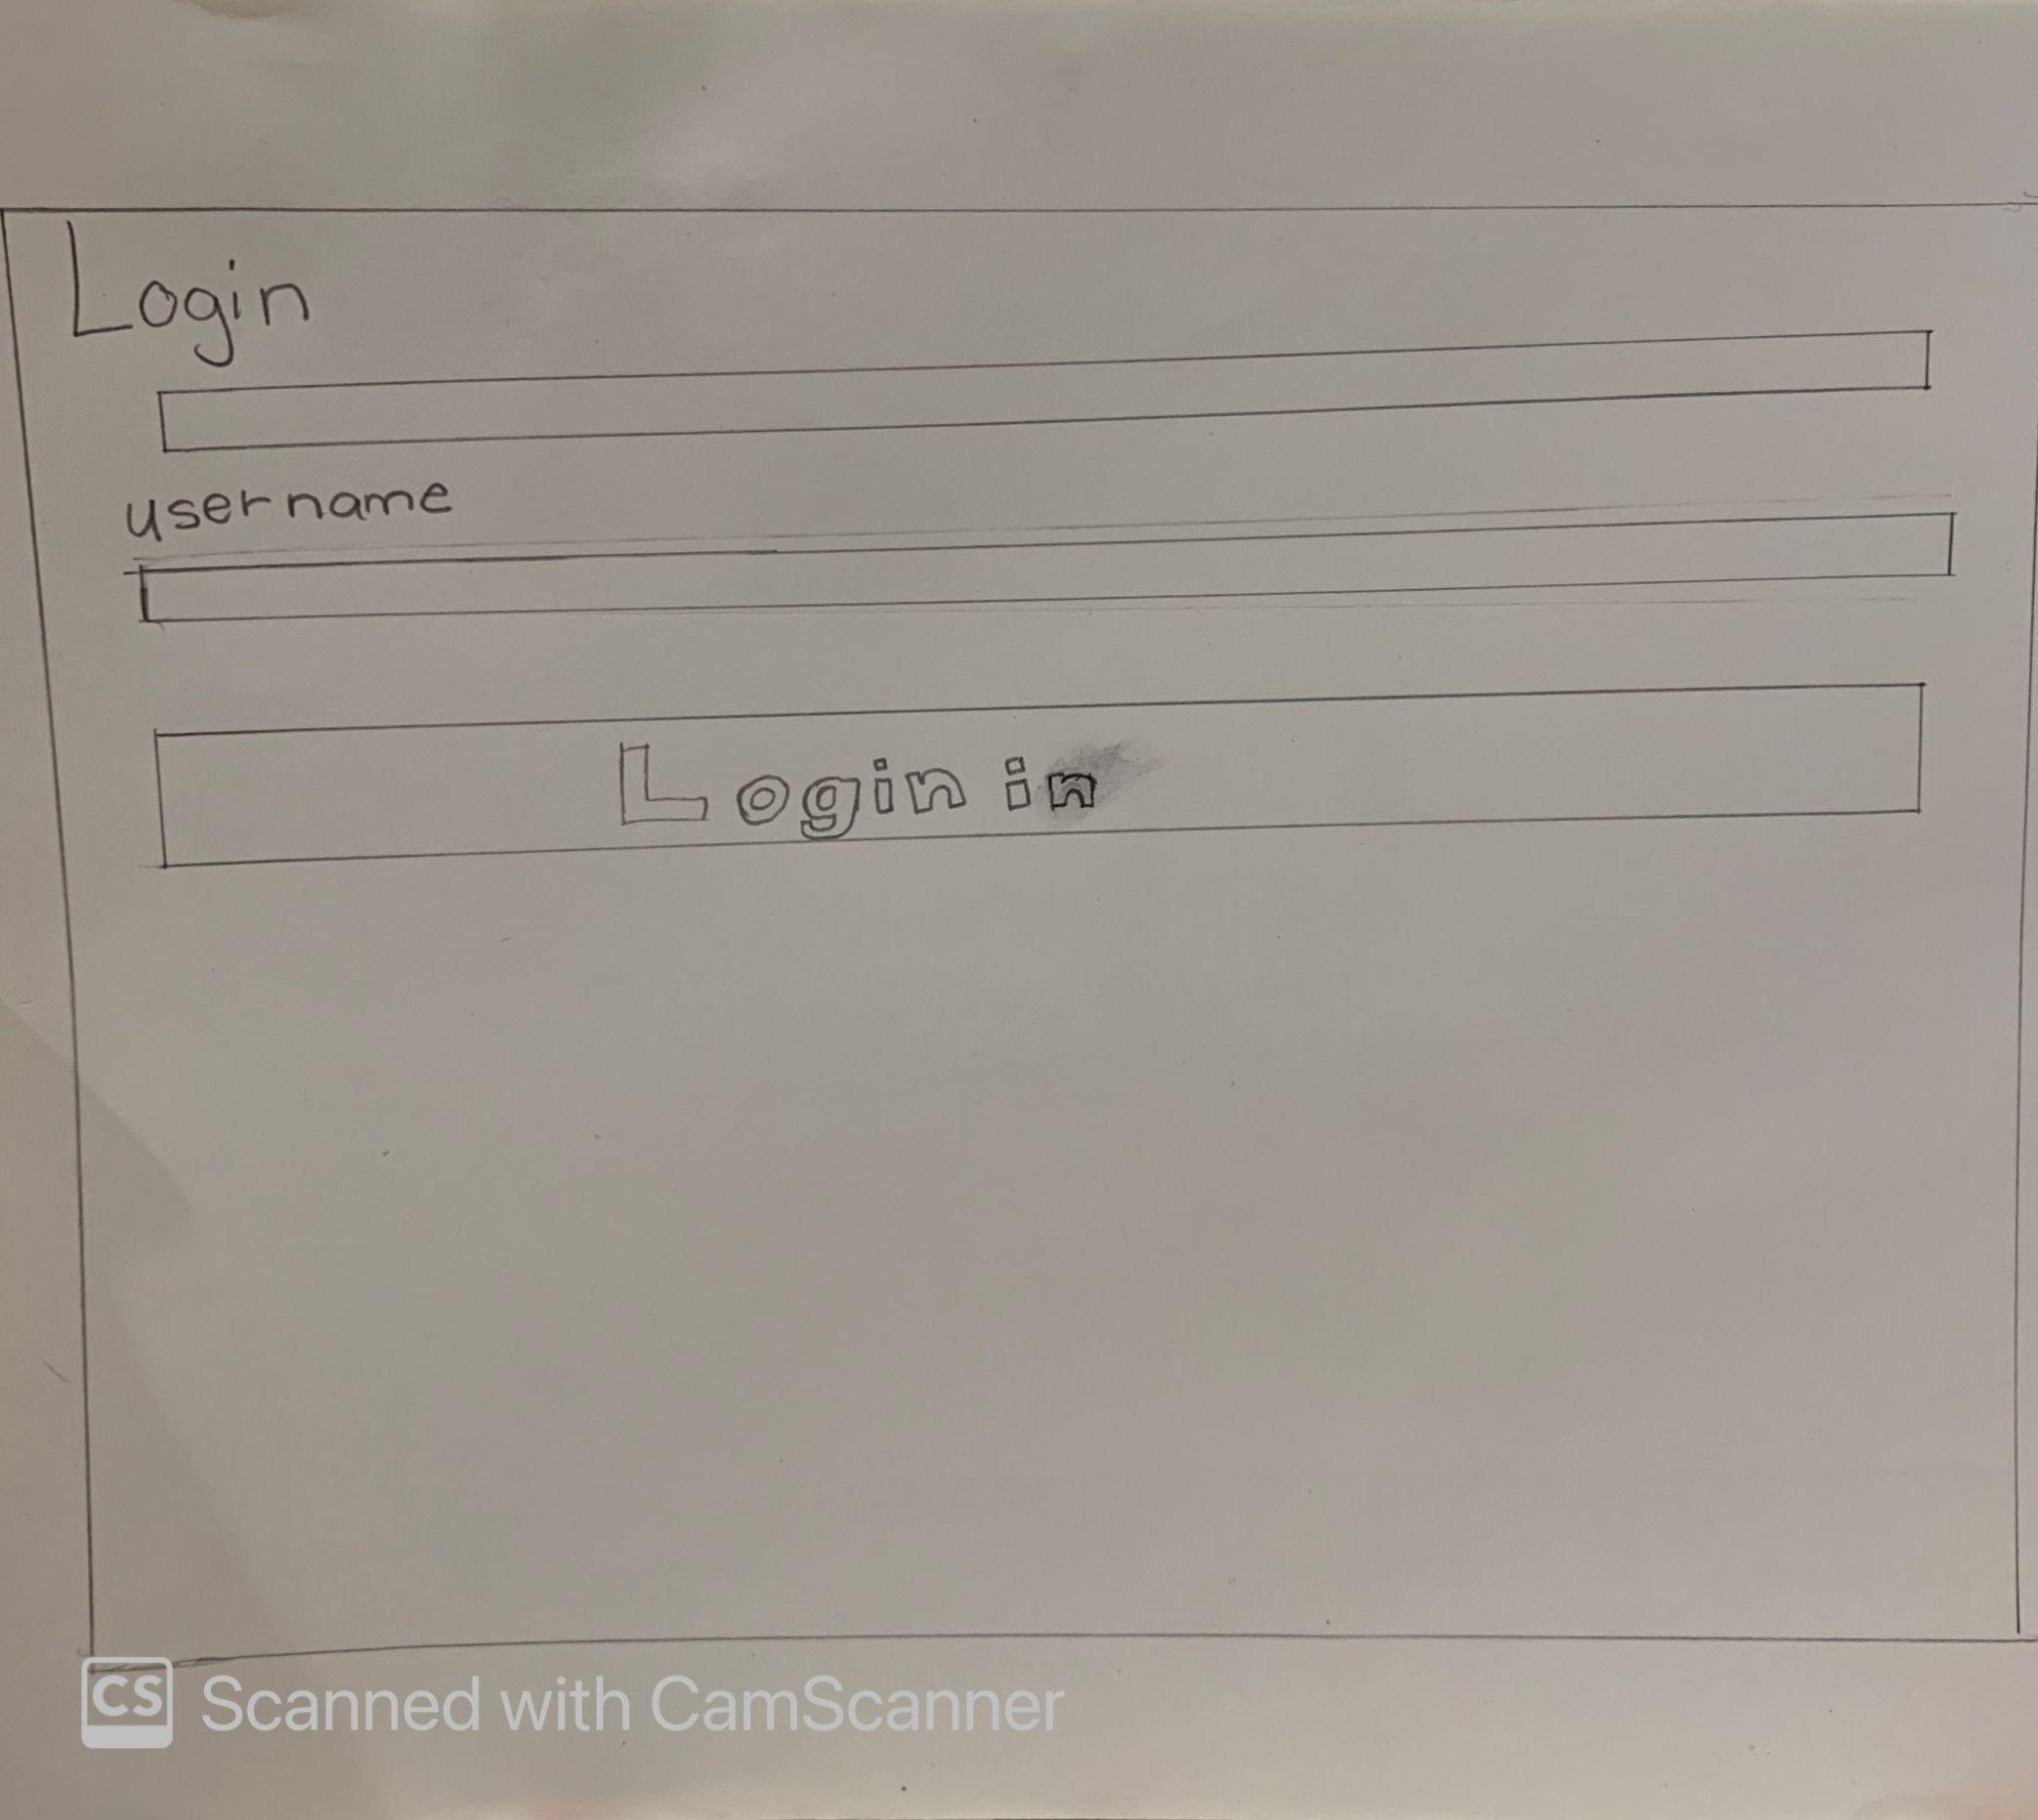 Login
username
Login in
CS Scanned with CamScanner